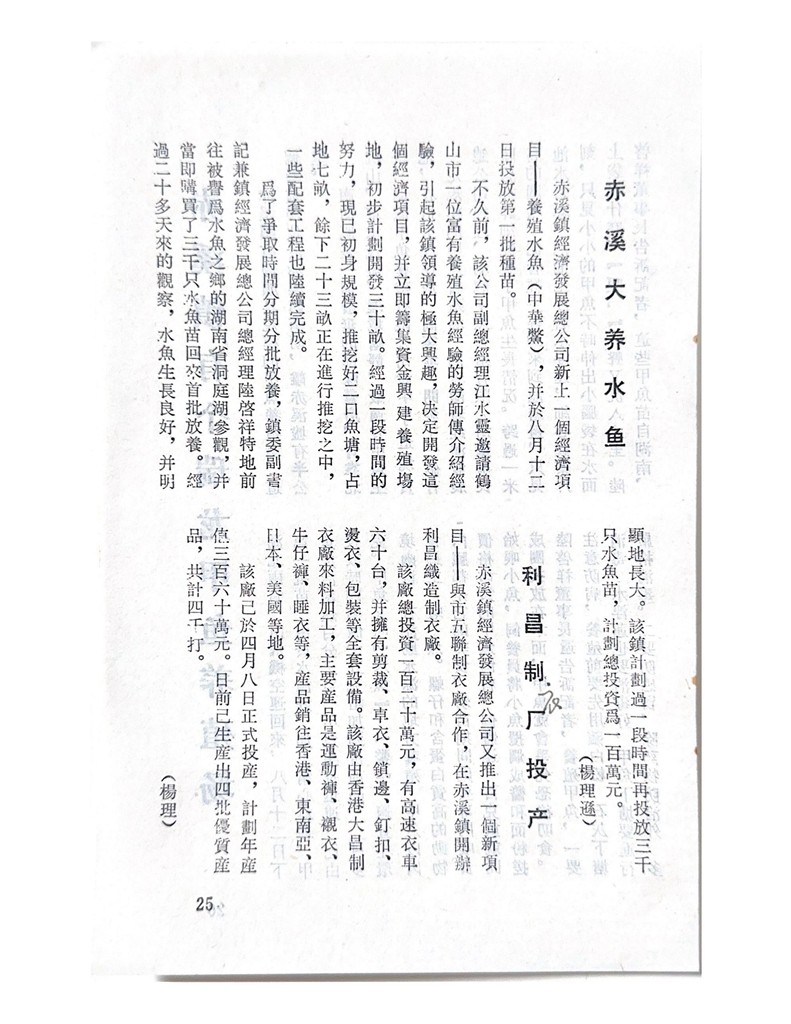 赤溪大养水鱼
赤溪鎮經濟發展總公司新上一個經濟項
目——養殖水魚（中華鱉），并於八月十二
日投放第一批種苗。
不久前，該公司副總經理江水靈邀請鶴
山市一位富有養殖水魚經驗的勞師傅介紹經
驗，引起該鎮領導的極大興趣，决定開發這
個經濟項目，并立即籌集資金興建養殖塲
地，初步計劃開發三十畝。經過一段時間的
努力，現已初身規模，推挖好二口魚塘，占
地七畝，餘下二十三畝正在進行推挖之中，
一些配套工程也陸續完成。
爲了爭取時間分期分批放養，鎮委副書
記兼鎮經濟發展總公司總經理陸啓祥特地前
往被譽爲水魚之鄉的湖南省洞庭湖參觀，并
當即購買了三千只水魚苗回來首批放養。經
過二十多天來的觀察，水魚生長良好，并明
顯地長大。該鎮計劃過一段時間再投放三千
只水魚苗，計劃總投資爲一百萬元。
（楊理遜）
利昌制衣厂投产
赤溪鎮經濟發展總公司又推出一個新項
目——與市五聯制衣廠合作，在赤溪鎮開辦
利昌織造制衣廠。
該廠總投資一百二十萬元，有高速衣車
六十台，并擁有剪裁、車衣、鎖邊、釘扣、
燙衣、包裝等全套設備。該廠由香港大昌制
衣廠來料加工，主要産品是運動褲、襯衣、
牛仔褲、睡衣等，産品銷往香港、東南亞、
日本、美國等地。
該廠己於四月八日正式投産，計劃年産
值三百六十萬元。日前己生産出四批優質産
品，共計四千打。
（楊理）
25